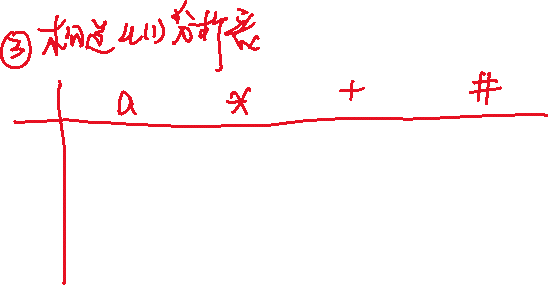 ③ 构造LL(1)分析表
a * + #